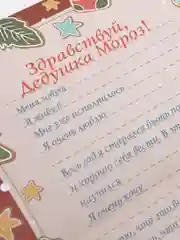 Здравствуй,
Дедушка Мороз!
Меня зовут
Я живу в
Мне уже исполнилось
Я очень люблю
Весь год я старался быть по
и хорошо себя вести. В эт
научился
Я очень хочу